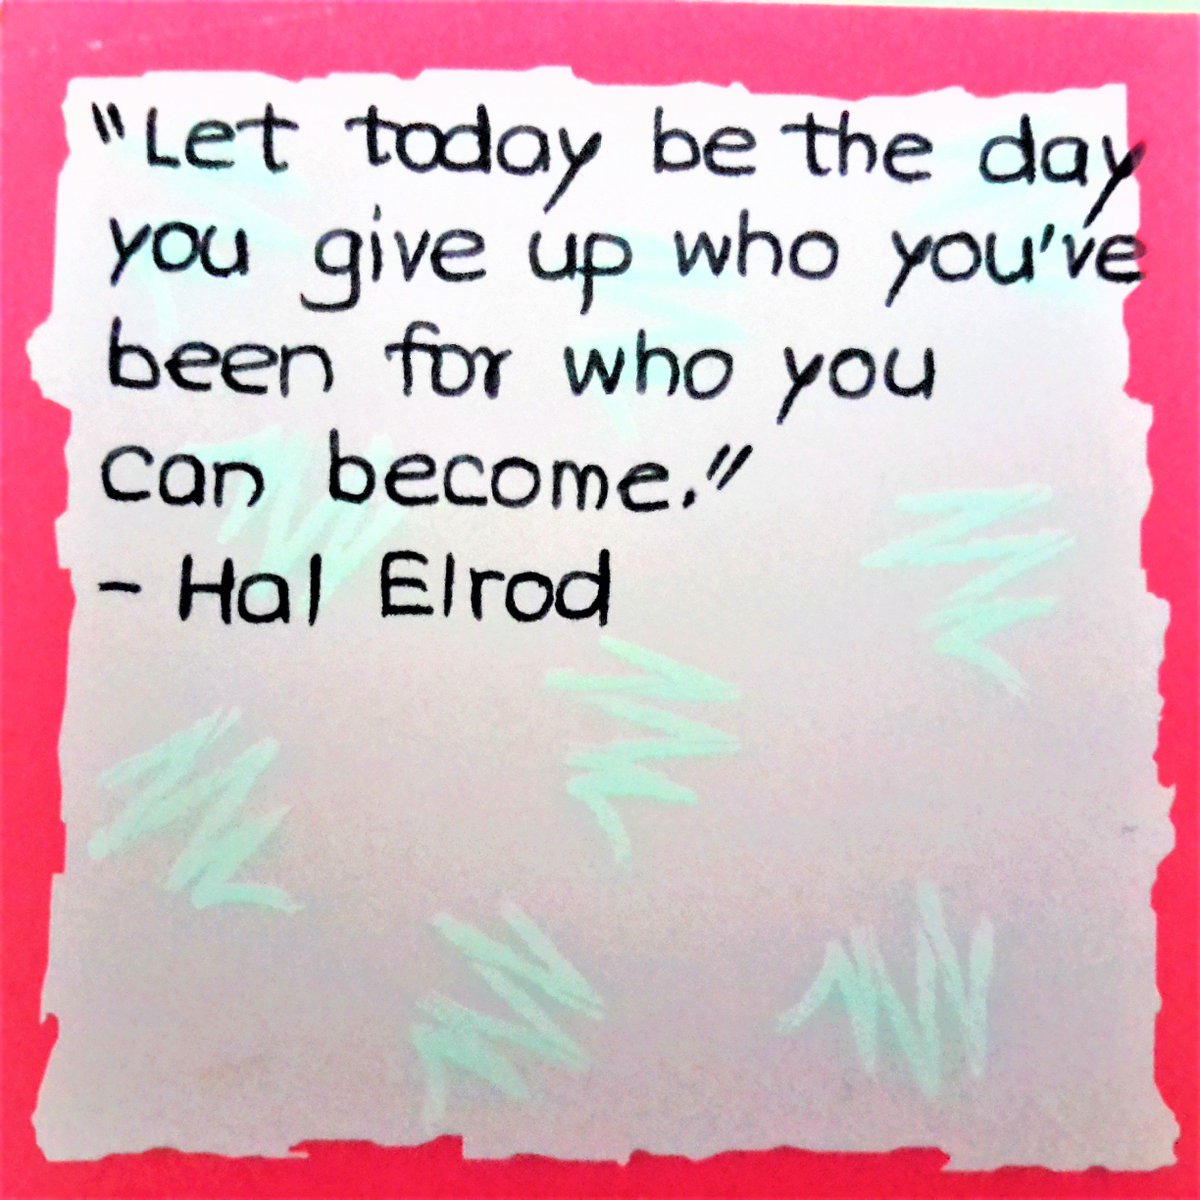 "Let today be the day
you give up who you've
been for who you
can become."
- Hal Elrod